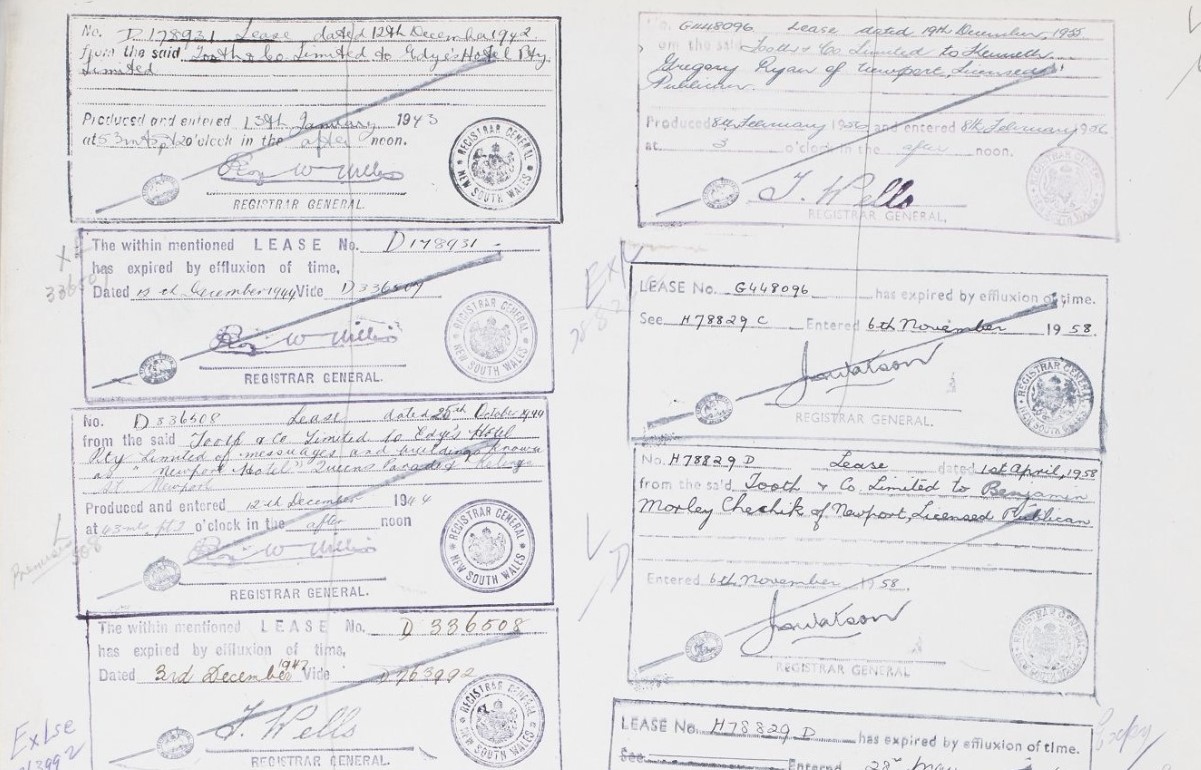 No. D178931 Lease dated 12th December 1942
from the said Tooth & Co. Limited to Edye's Hotel Pty.
Limited
Produced and entered 13th January 1943
at o'clock in the after noon.
REGISTRAR GENERAL.
REGISTRAR GENERAL NEW SOUTH WALES
The within mentioned LEASE No. D178931
has expired by effluxion of time,
Dated 12th December 1944 Vide D336507
REGISTRAR GENERAL.
REGISTRAR GENERAL NEW SOUTH WALES
No. D336508 Lease dated October 1944
from the said Tooth & Co Limited to Edye's Hotel
Pty Limited of and buildings known
as "Newport Hotel" Queens Parade
Newport
Produced and entered 12th December 1944
at o'clock in the after noon
REGISTRAR GENERAL.
REGISTRAR GENERAL NEW SOUTH WALES
The within mentioned LEASE No. D336508
has expired by effluxion of time,
Dated 3rd December 1947 Vide
REGISTRAR GENERAL.
No. G448096 Lease dated 19th December, 1955
from the said Tooth & Co. Limited to Kenneth
Gregory Ryan of Newport, Licensed
Publican.
Produced 8th February 1956 and entered 8th February 1956
at 3 o'clock in the after noon.
REGISTRAR GENERAL
LEASE No. G448096 has expired by effluxion of time.
See H78829 C Entered 6th November 1958.
REGISTRAR GENERAL.
No. H78829 D Lease dated 1st April, 1958
from the said Tooth & Co Limited to Benjamin
Morley of Newport, Licensed Publican
Entered 6th November 1958.
REGISTRAR GENERAL.
LEASE No. H78829 D has expired by effluxion of time.
See Entered 28th May